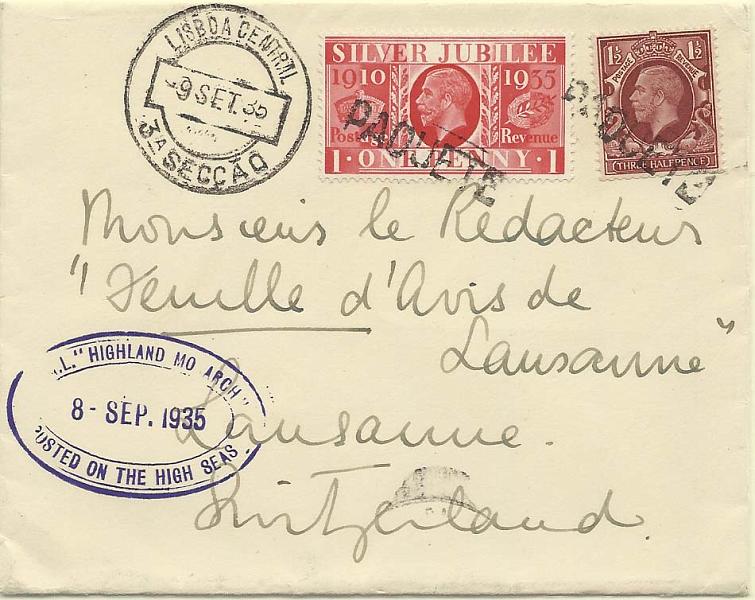 LISBOA CENTRAL
-9 SET. 35
3ª SECCÃO
SILVER JUBILEE
1910 1935
Postage Revenue
1 · ONE PENNY · 1
PAQUETE
1½ 1½
POSTAGE REVENUE
THREE HALFPENCE
PAQUETE
Monsieur le Rédacteur
"Feuille d'Avis de
Lausanne"
Lausanne.
Switzerland.
.L. "HIGHLAND MO ARCH"
8 - SEP. 1935
OSTED ON THE HIGH SEAS